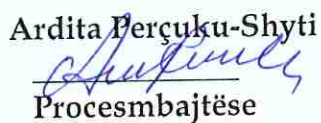 Ardita Perçuku-Shyti
Procesmbajtëse